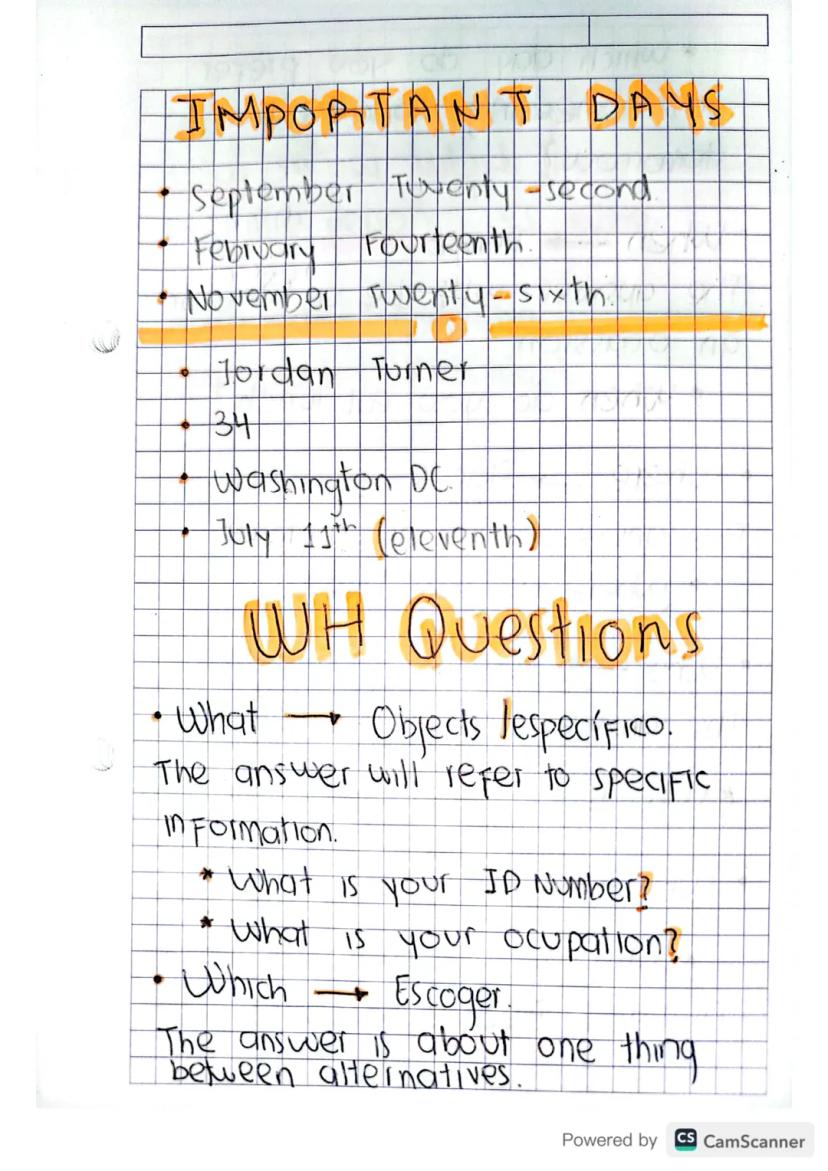 IMPORTANT DAYS
• September Twenty-second.
• Febivary Fourteenth.
• November Twenty-sixth.
• Jordan Turner
• 34
• Washington DC.
• July 11th (eleventh)
WH Questions
• What → Objects /específico.
The answer will refer to specific
information.
* What is your ID Number?
* What is your ocupation?
• Which → Escoger.
The answer is about one thing
between alternatives.
Powered by CS CamScanner